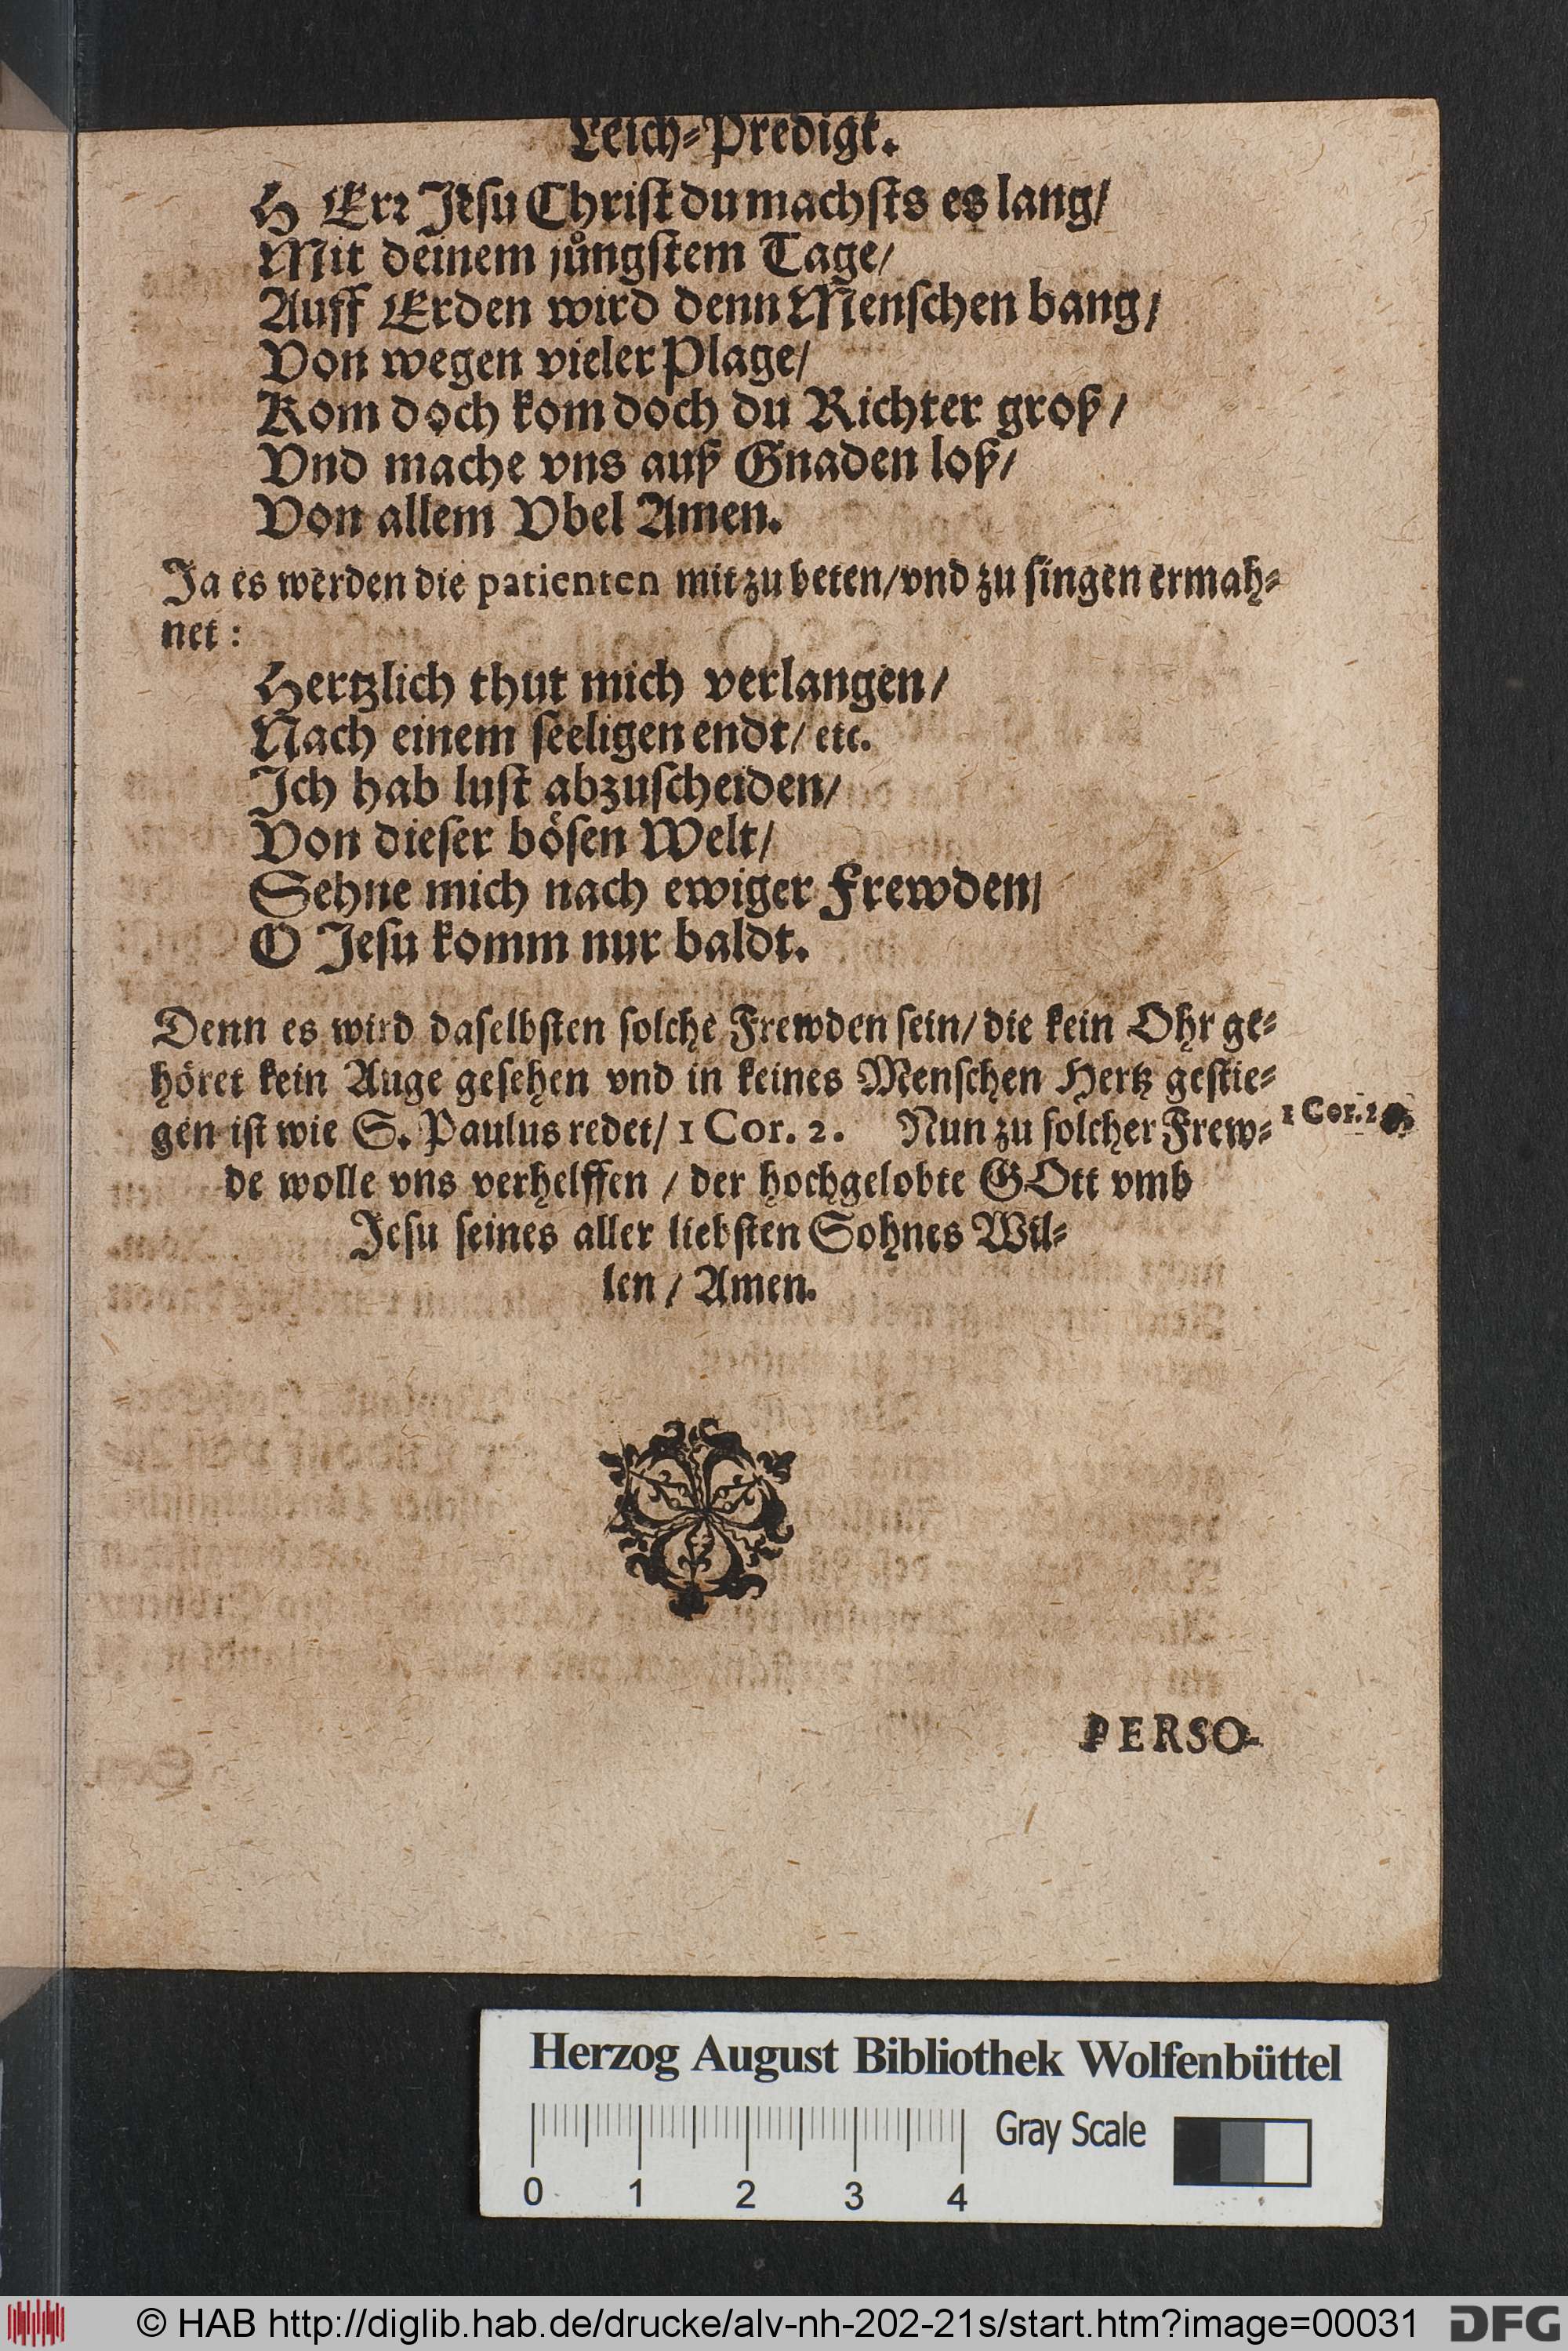 Leich-Predigt.
HErr Jesu Christ du machsts es lang/
Mit deinem jüngstem Tage/
Auff Erden wird denn Menschen bang/
Von wegen vieler Plage/
Kom doch kom doch du Richter groß/
Vnd mache vns auß Gnaden loß/
Von allem Vbel Amen.
Ja es werden die patienten mit zu beten/vnd zu singen ermah-
net:
Hertzlich thut mich verlangen/
Nach einem seeligen endt/ etc.
Ich hab lust abzuscheiden/
Von dieser bösen Welt/
Sehne mich nach ewiger Frewden/
O Jesu komm nur baldt.
Denn es wird daselbsten solche Frewden sein/ die kein Ohr ge-
höret kein Auge gesehen vnd in keines Menschen Hertz gestie-
gen ist wie S. Paulus redet/ 1 Cor. 2. Nun zu solcher Frew-
1 Cor. 2
de wolle vns verhelffen / der hochgelobte GOtt vmb
Jesu seines aller liebsten Sohnes Wil-
len / Amen.
PERSO-
Herzog August Bibliothek Wolfenbüttel
Gray Scale
0 1 2 3 4
© HAB http://diglib.hab.de/drucke/alv-nh-202-21s/start.htm?image=00031
DFG